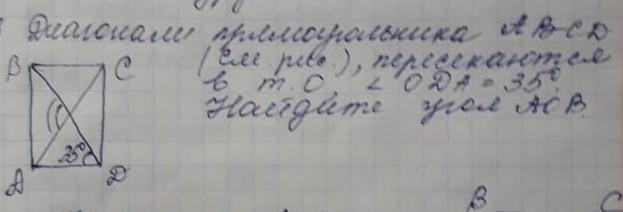 Диагонали прямоугольника ABCD
(см. рис.), пересекаются
в т. O, ∠ ODA = 35°.
Найдите угол AOB.
B C
35°
A D
B C